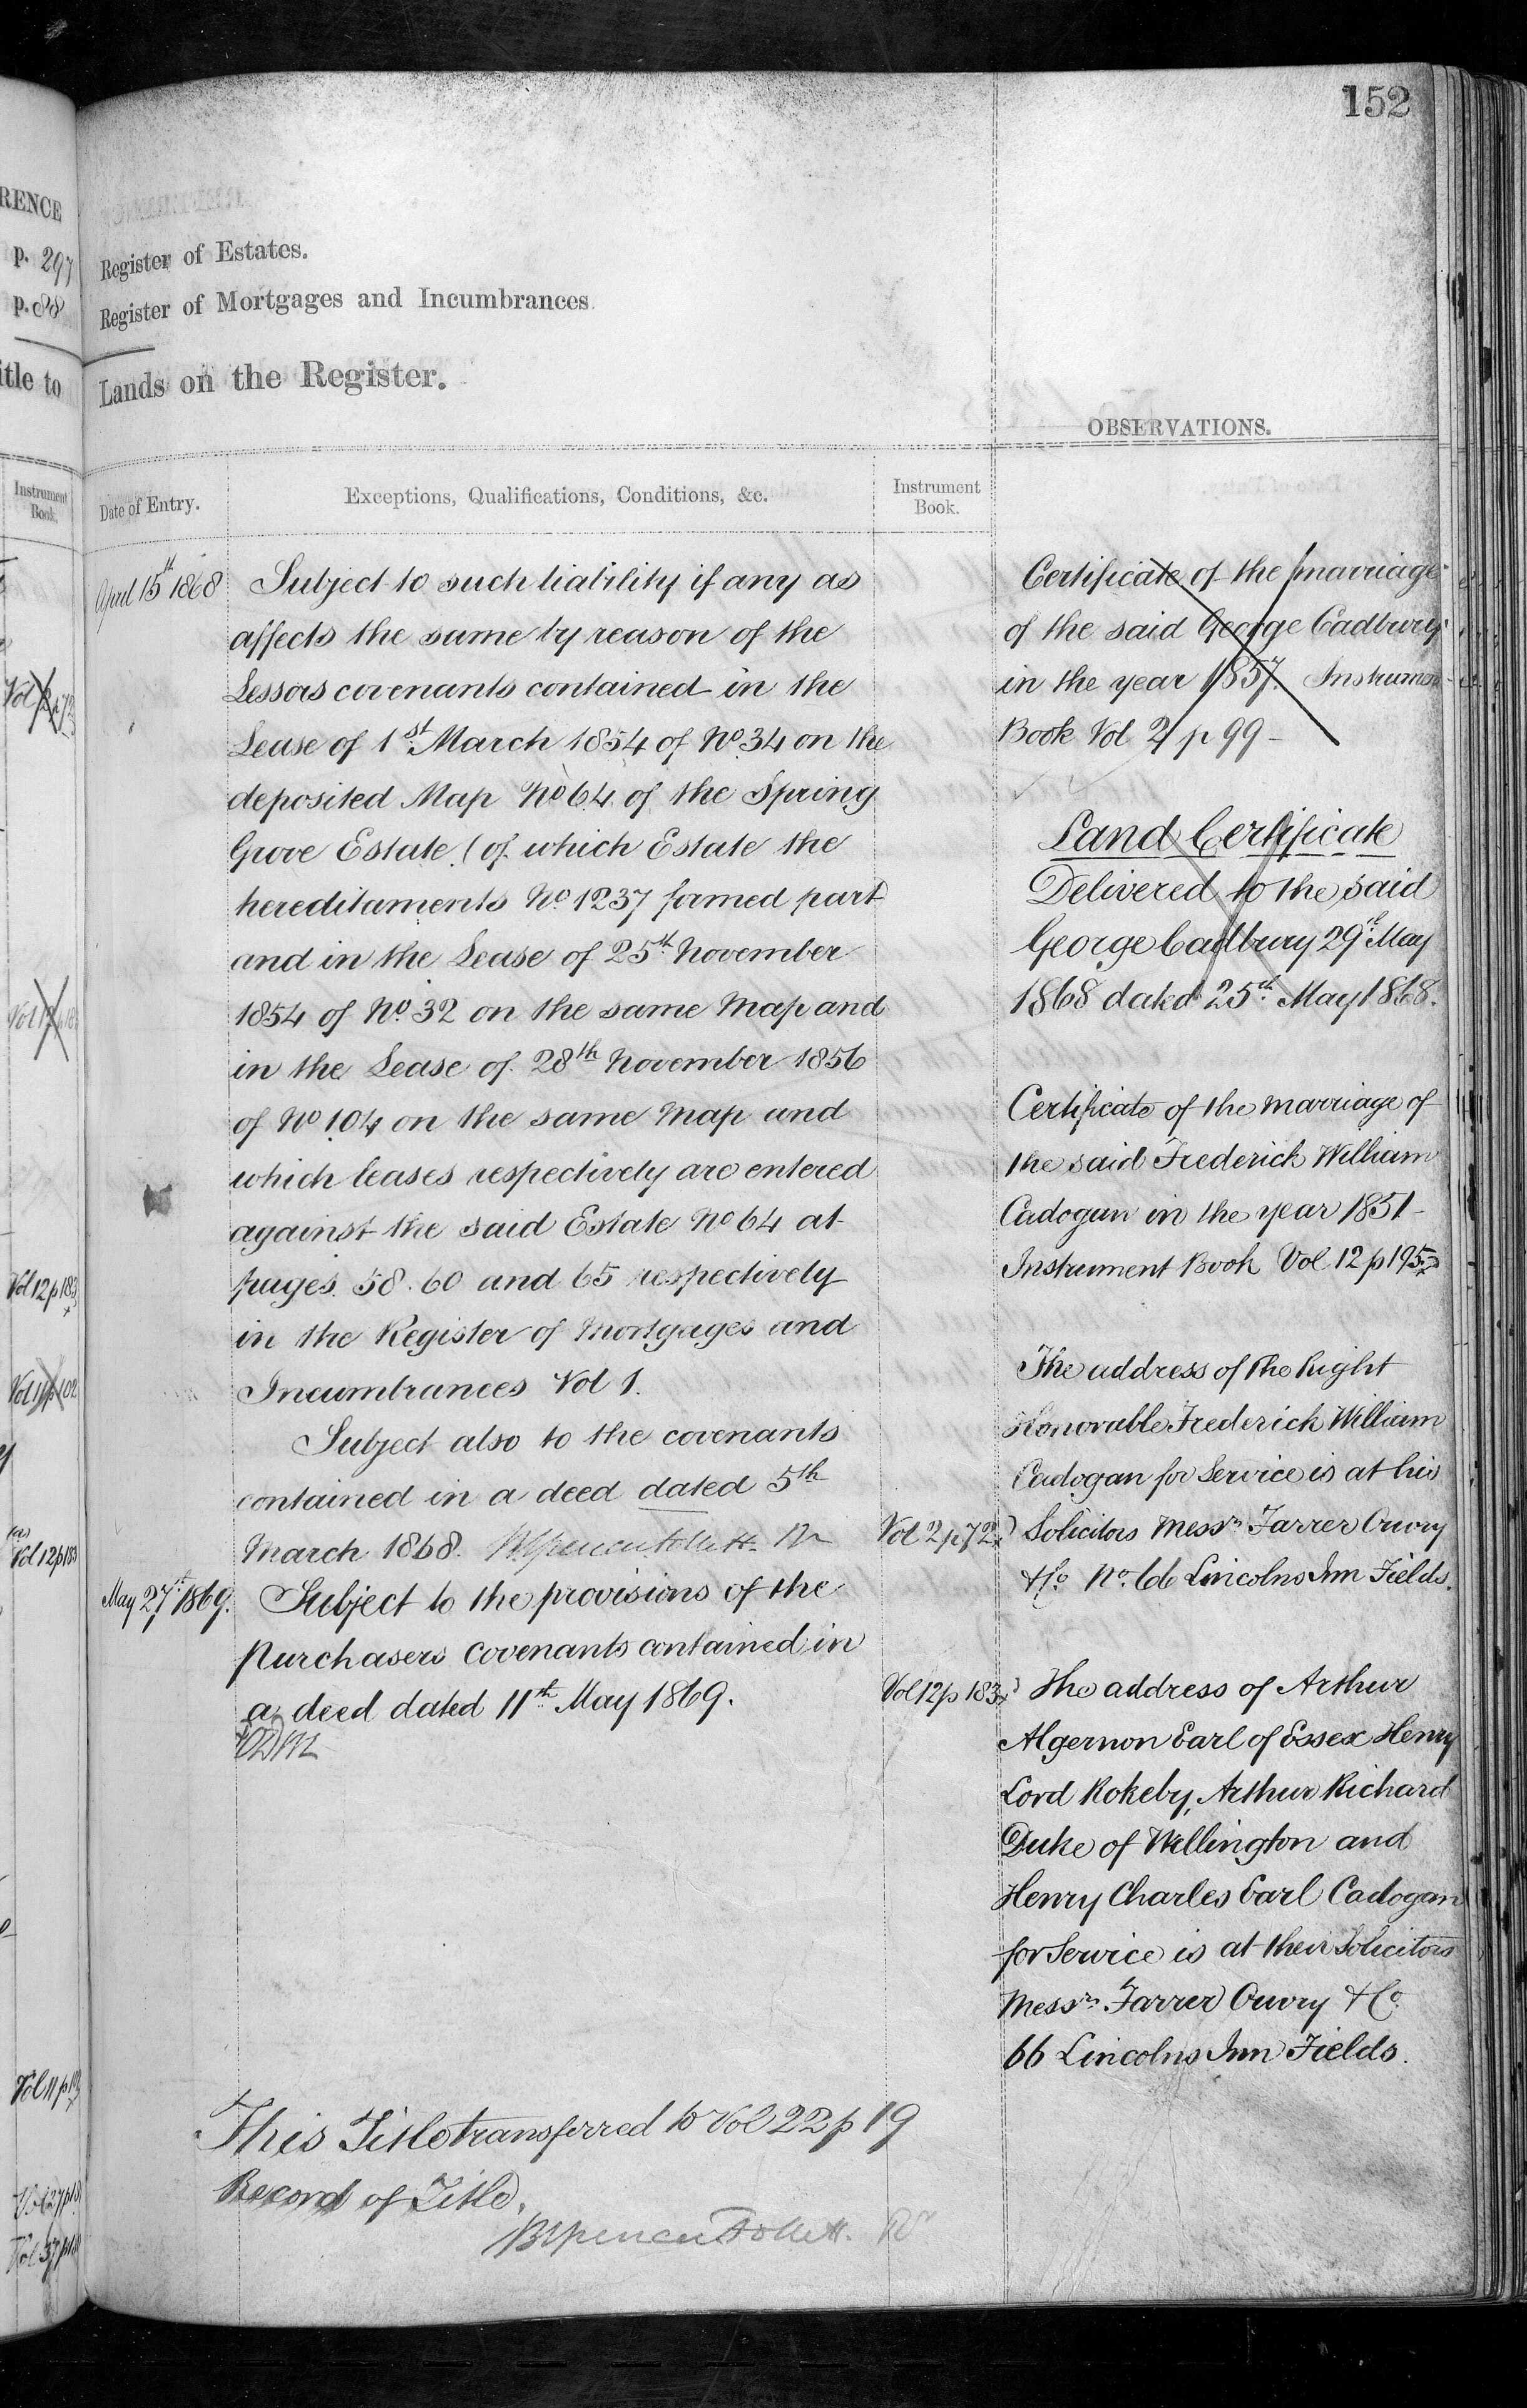 152
RENCE
p. 297
p. 88
itle to
Instrument
Book.
Vol 12 p 183
Vol 11 p 102
(a)
Vol 12 p 183
Register of Estates.
Register of Mortgages and Incumbrances.
Lands on the Register.
Date of Entry.
Exceptions, Qualifications, Conditions, &c.
Instrument
Book.
April 15th 1868
Subject to such liability if any as
affects the same by reason of the
Lessors covenants contained in the
Lease of 1st March 1854 of No. 34 on the
deposited Map No 64 of the Spring
Grove Estate (of which Estate the
hereditaments No. 1237 formed part)
and in the Lease of 25th November
1854 of No. 32 on the same Map and
in the Lease of 28th November 1856
of No 104 on the same Map and
which leases respectively are entered
against the said Estate No 64 at
pages 58. 60 and 65 respectively
in the Register of Mortgages and
Incumbrances Vol 1.
Subject also to the covenants
contained in a deed dated 5th
March 1868. B Spencer Follett Rr
Vol 2 p 72
May 27th 1869.
Subject to the provisions of the
Purchasers covenants contained in
a deed dated 11th May 1869.
Vol 12 p 183
This Title transferred to Vol 22 p 19
Record of Title.
B Spencer Follett. Rr
OBSERVATIONS.
Certificate of the marriage
of the said George Cadbury
in the year 1857. Instrument
Book Vol 2 p 99-
Land Certificate
Delivered to the said
George Cadbury 29th May
1868 dated 25th May 1868.
Certificate of the marriage of
the said Frederick William
Cadogan in the year 1851-
Instrument Book Vol 12 p 195
The address of the Right
Honorable Frederick William
Cadogan for Service is at his
Solicitors Messrs Farrer Ouvry
& Co No. 66 Lincolns Inn Fields.
The address of Arthur
Algernon Earl of Essex Henry
Lord Rokeby, Arthur Richard
Duke of Wellington and
Henry Charles Earl Cadogan
for Service is at their Solicitors
Messrs Farrer Ouvry & Co.
66 Lincolns Inn Fields.